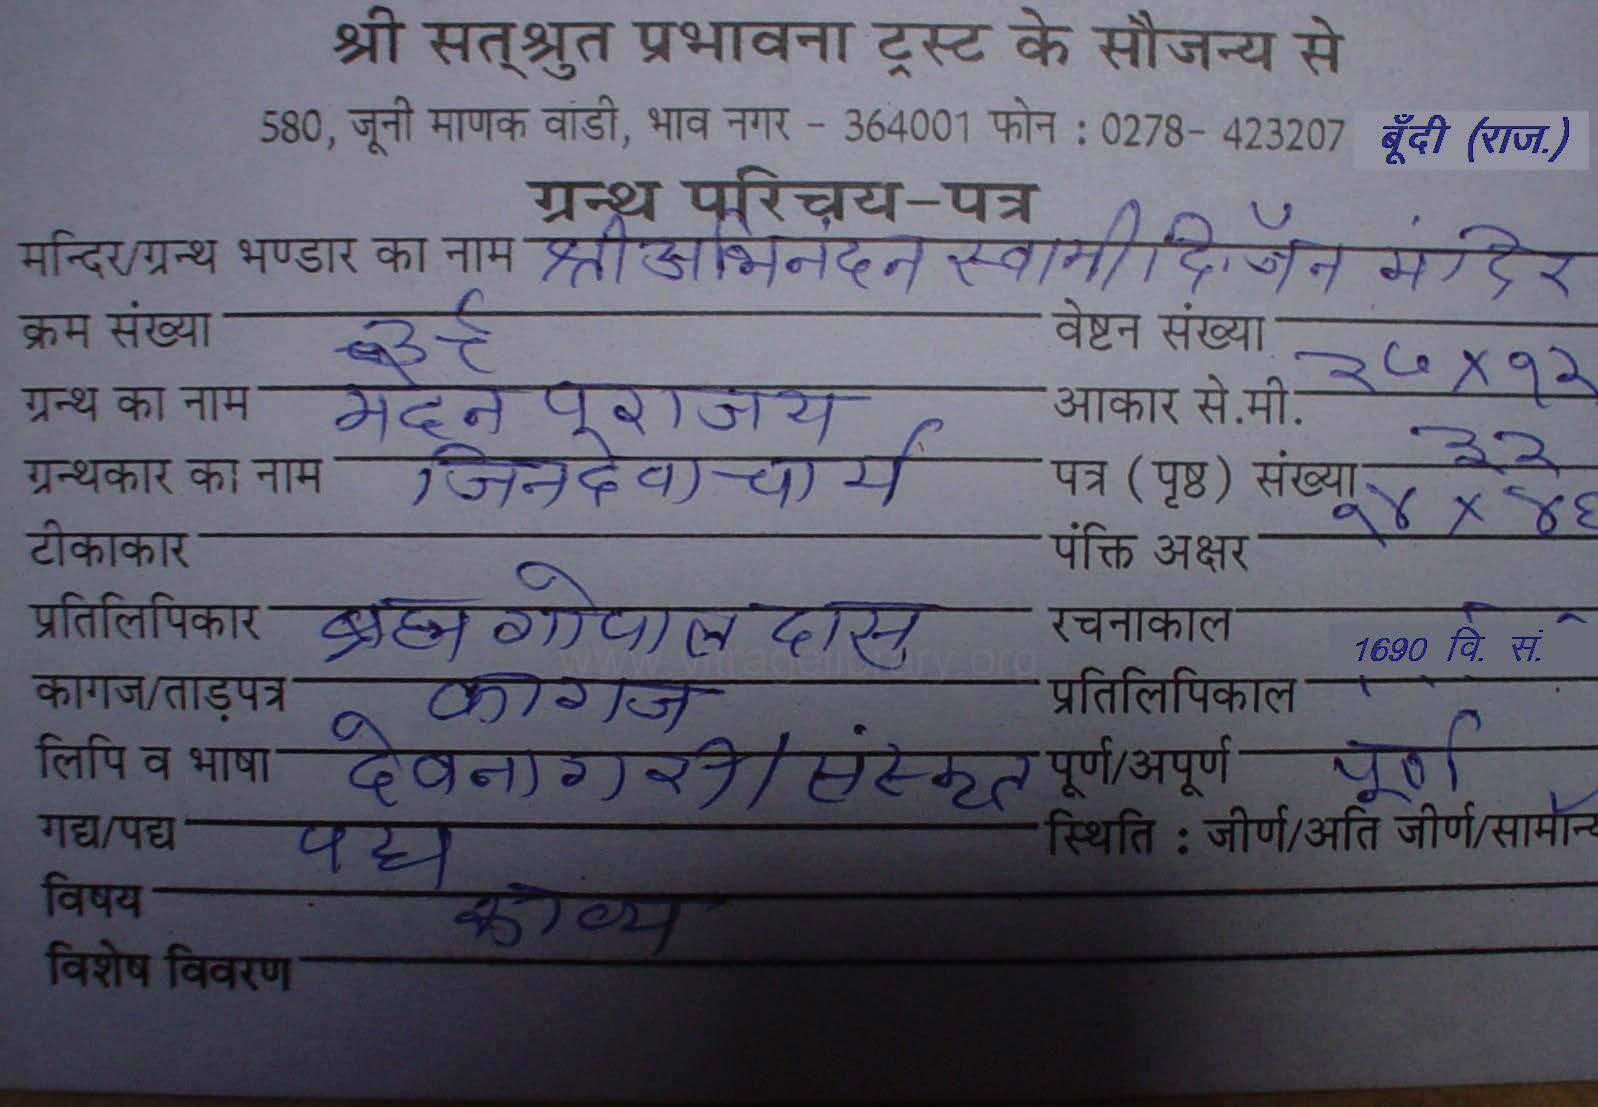 श्री सत्श्रुत प्रभावना ट्रस्ट के सौजन्य से
580, जूनी माणक वाडी, भाव नगर - 364001 फोन : 0278- 423207 बूँदी (राज.)
ग्रन्थ परिचय-पत्र
मन्दिर/ग्रन्थ भण्डार का नाम श्री अभिनंदन स्वामी दि. जैन मंदिर
क्रम संख्या वेष्टन संख्या
ग्रन्थ का नाम मदन पराजय आकार से.मी. २७ X १२
ग्रन्थकार का नाम जिनदेवाचार्य पत्र (पृष्ठ) संख्या ३२
टीकाकार पंक्ति अक्षर १४ X ४६
प्रतिलिपिकार ब्रह्म गोपाल दास रचनाकाल
कागज/ताड़पत्र कागज प्रतिलिपिकाल 1690 वि. सं.
लिपि व भाषा देवनागरी/संस्कृत पूर्ण/अपूर्ण पूर्ण
गद्य/पद्य पद्य स्थिति : जीर्ण/अति जीर्ण/सामान्य
विषय काव्य
विशेष विवरण